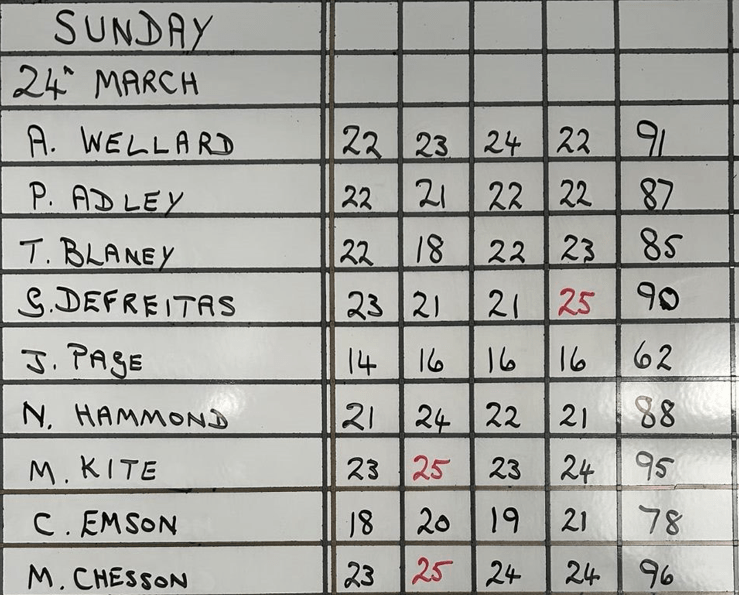 SUNDAY
24" MARCH
A. WELLARD 22 23 24 22 91
P. ADLEY 22 21 22 22 87
T. BLANEY 22 18 22 23 85
G. DEFREITAS 23 21 21 25 90
J. PAGE 14 16 16 16 62
N. HAMMOND 21 24 22 21 88
M. KITE 23 25 23 24 95
C. EMSON 18 20 19 21 78
M. CHESSON 23 25 24 24 96